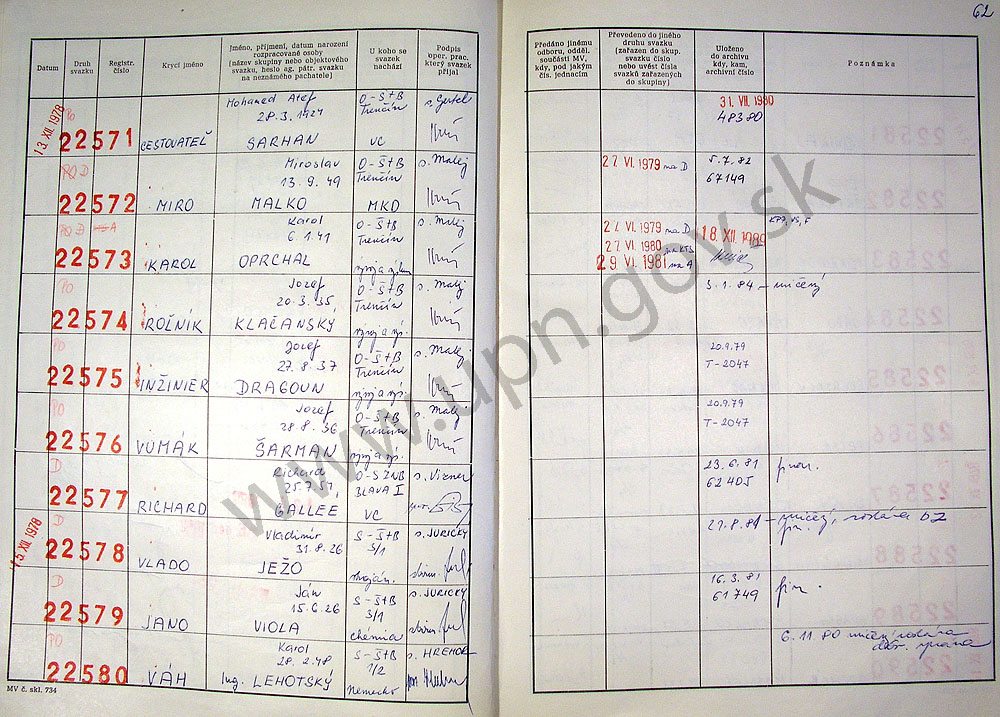 62
Datum
Druh svazku
Registr. číslo
Krycí jméno
Jméno, příjmení, datum narození rozpracované osoby (název skupiny nebo objektového svazku, heslo ag. pátr. svazku na neznámého pachatele)
U koho se svazek nachází
Podpis oper. prac. který svazek přijal
Předáno jinému odboru, odděl. součásti MV, kdy, pod jakým čís. jednacím
Převedeno do jiného druhu svazku (zařazen do skup. svazku číslo nebo uvést čísla svazků zařazených do skupiny)
Uloženo do archivu kdy, kam, archivní číslo
Poznámka
13. XII. 1978 PO 22571 CESTOVATEĽ Mohamed Atef 28.3.1927 SARHAN O-ŠtB Trenčín VC s. Gestel
31. VII. 1980 48380
PO D 22572 MIRO Miroslav 13.9.49 MALKO O-ŠtB Trenčín MKD s. Malej
22 VI. 1979 na D 5.7.82 67149
PO D A 22573 KAROL Karol 6.1.41 OPRCHAL O-ŠtB Trenčín s. Malej
22 VI. 1979 na D
27 VI. 1980 KTS
29 VI. 1981 na A
18. XII. 1989
PO 22574 ROĽNÍK Jozef 20.3.35 KLAČANSKÝ O-ŠtB Trenčín s. Malej
3.1.84 - zničený
PO 22575 INŽINIER Jozef 27.8.37 DRAGOUN O-ŠtB Trenčín s. Malej
20.9.79 T-2047
PO 22576 VUMÁK Jozef 28.8.36 ŠARMAN O-ŠtB Trenčín s. Malej
20.9.79 T-2047
D 22577 RICHARD Richard 25.7.51 GALLEE O-S ZNB BLAVA I VC s. Vizner
23.6.81 62405
15. XII. 1978 D 22578 VLADO Vladimír 31.8.26 JEŽO S-ŠtB 3/1 s. JURICKÝ
27.8.81 - zničený,
D 22579 JANO Ján 15.6.26 VIOLA S-ŠtB 3/1 chémia s. JURICKÝ
16.3.81 61749
PO 22580 VÁH Karol 28.2.48 Ing. LEHOTSKÝ S-ŠtB 1/2 Nemecko
6.11.80 zničený
MV č. skl. 734
www.upn.gov.sk